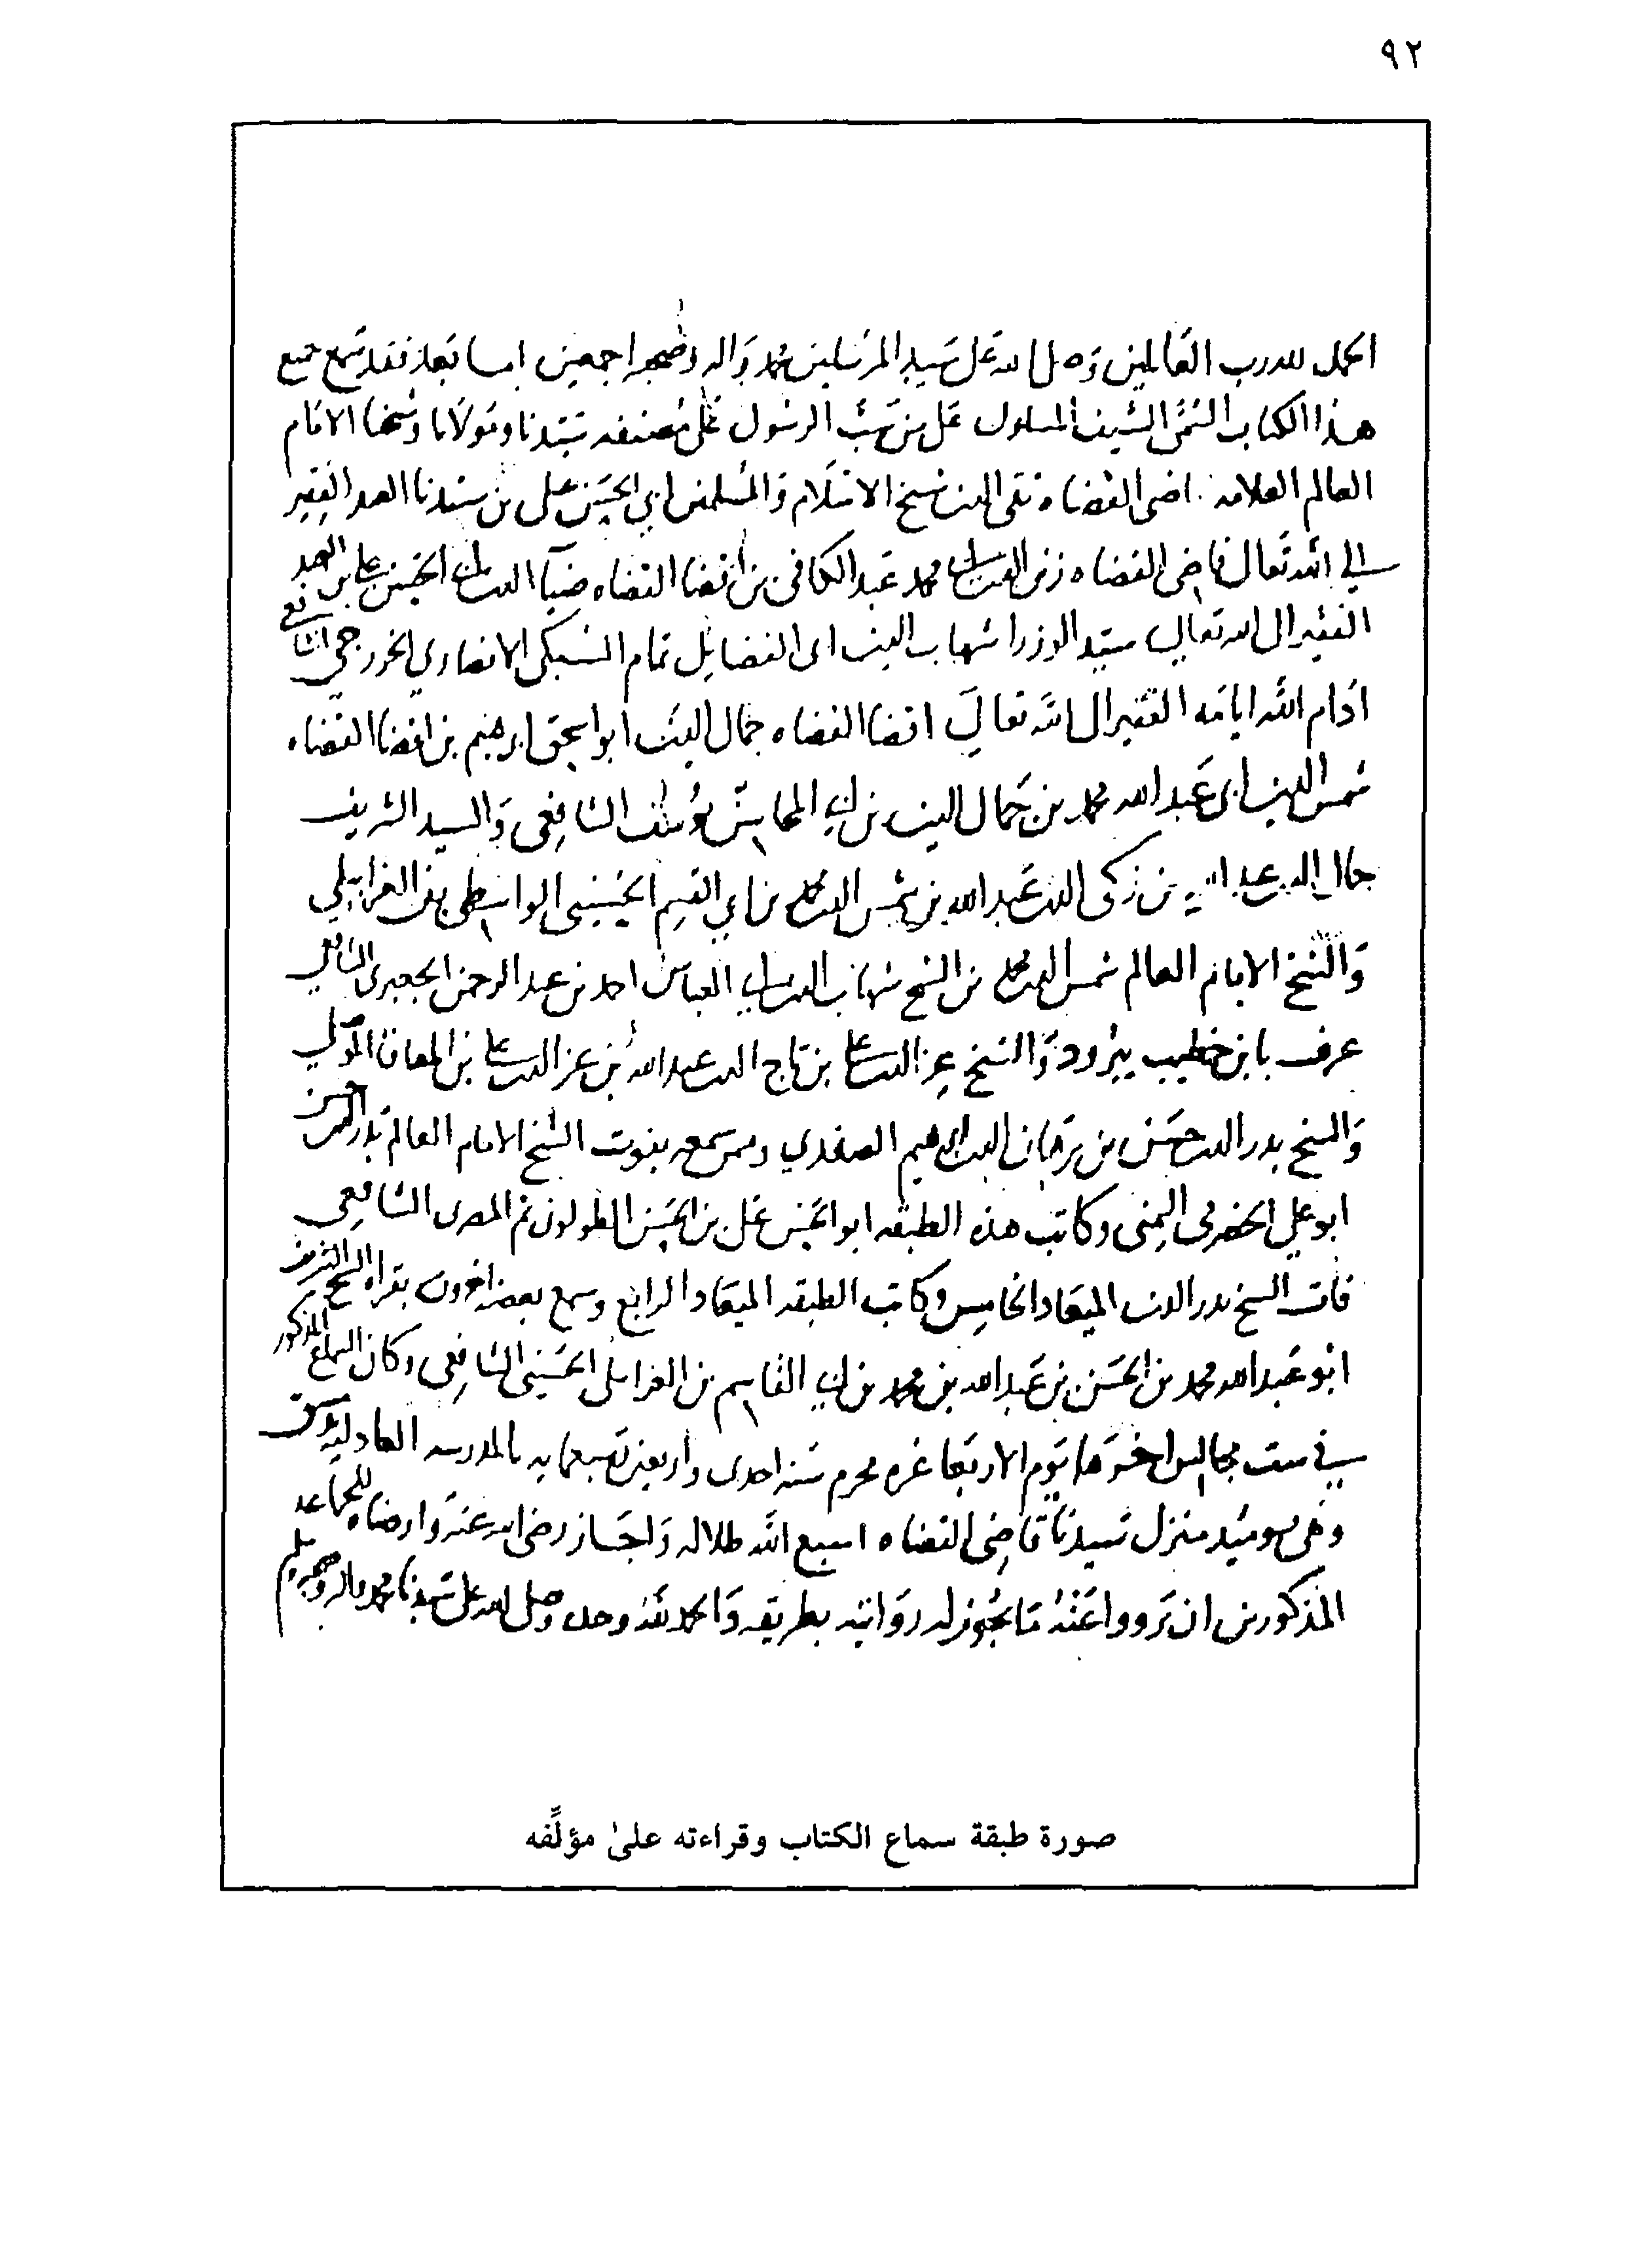 ٩٢
الحمد لله رب العالمين وصلى الله على سيد المرسلين محمد واله وصحبه اجمعين اما بعد فقد سمع جميع
هذا الكتاب المسمى السيف المسلول على من سب الرسول على مصنفه سيدنا ومولانا وشيخنا الامام
العالم العلامه قاضى القضاه تقى الدين شيخ الاسلام والمسلمين ابي الحسن على بن سيدنا العبد الفقير
الى الله تعالى قاضى القضاه زين الدين ابى محمد عبد الكافى بن اقضا القضاه ضيآ الدين ابى الحسن على بن العبد
الفقير الى الله تعالى سيد الوزرا شهاب الدين ابى الفضايل تمام السبكى الانصاري الخزرجي الشافعي
ادام الله ايامه الفقير الى الله تعالى اقضا القضاه جمال الدين ابو اسحق ابرهيم بن اقضا القضاه
شمس الدين ابى عبد الله محمد بن جمال الدين بن ابي المحاسن يوسف الشافعى والسيد الشريف
جمال الدين عبد الله بن زكى الدين عبد الله بن شمس الدين محمد بن ابي القسم الحسينى الواسطى بن الغرابيلي
والشيخ الامام العالم شمس الدين محمد بن الشيخ شهاب الدين ابي العباس احمد بن عبد الرحمن الجعبرى الشافعي
عرف بابن خطيب يبرود والشيخ عز الدين على بن تاج الدين عبد الله بن عز الدين على بن المعافا الموصلي
والشيخ بدر الدين حسن بن ابراهيم الصفدي وممن سمعه بفوت الشيخ الامام العالم بدر الدين الحسن
ابو علي الحضرمى اليمنى وكاتب هذه الطبقه ابو الحسن على بن الحسن الطولونى ثم المصرى الشافعي
فات الشيخ بدر الدين الميعاد الخامس وكاتب الطبقه الميعاد الرابع وسمع بعضه اخرون بقراه الشيخ الشريف
ابو عبد الله محمد بن الحسن بن عبد الله بن محمد بن ابي القاسم بن الغرابيلى الحسينى الشافعى وكان السماع المذكور
في ست مجالس اخرها يوم الاربعا غره محرم سنه احدى واربعين وسبعمايه بالمدرسه العادليه بدمشق
وهى يوميئذ منزل سيدنا قاضى القضاه اسبغ الله ظلاله واجاز رضى الله عنه وارضاه للجماعه
المذكورين ان يرووا عنه ما يجوز له روايته بطريقه والحمد لله وحده وصلى الله على سيدنا محمد واله وصحبه وسلم
صورة طبقة سماع الكتاب وقراءته علىٰ مؤلِّفه